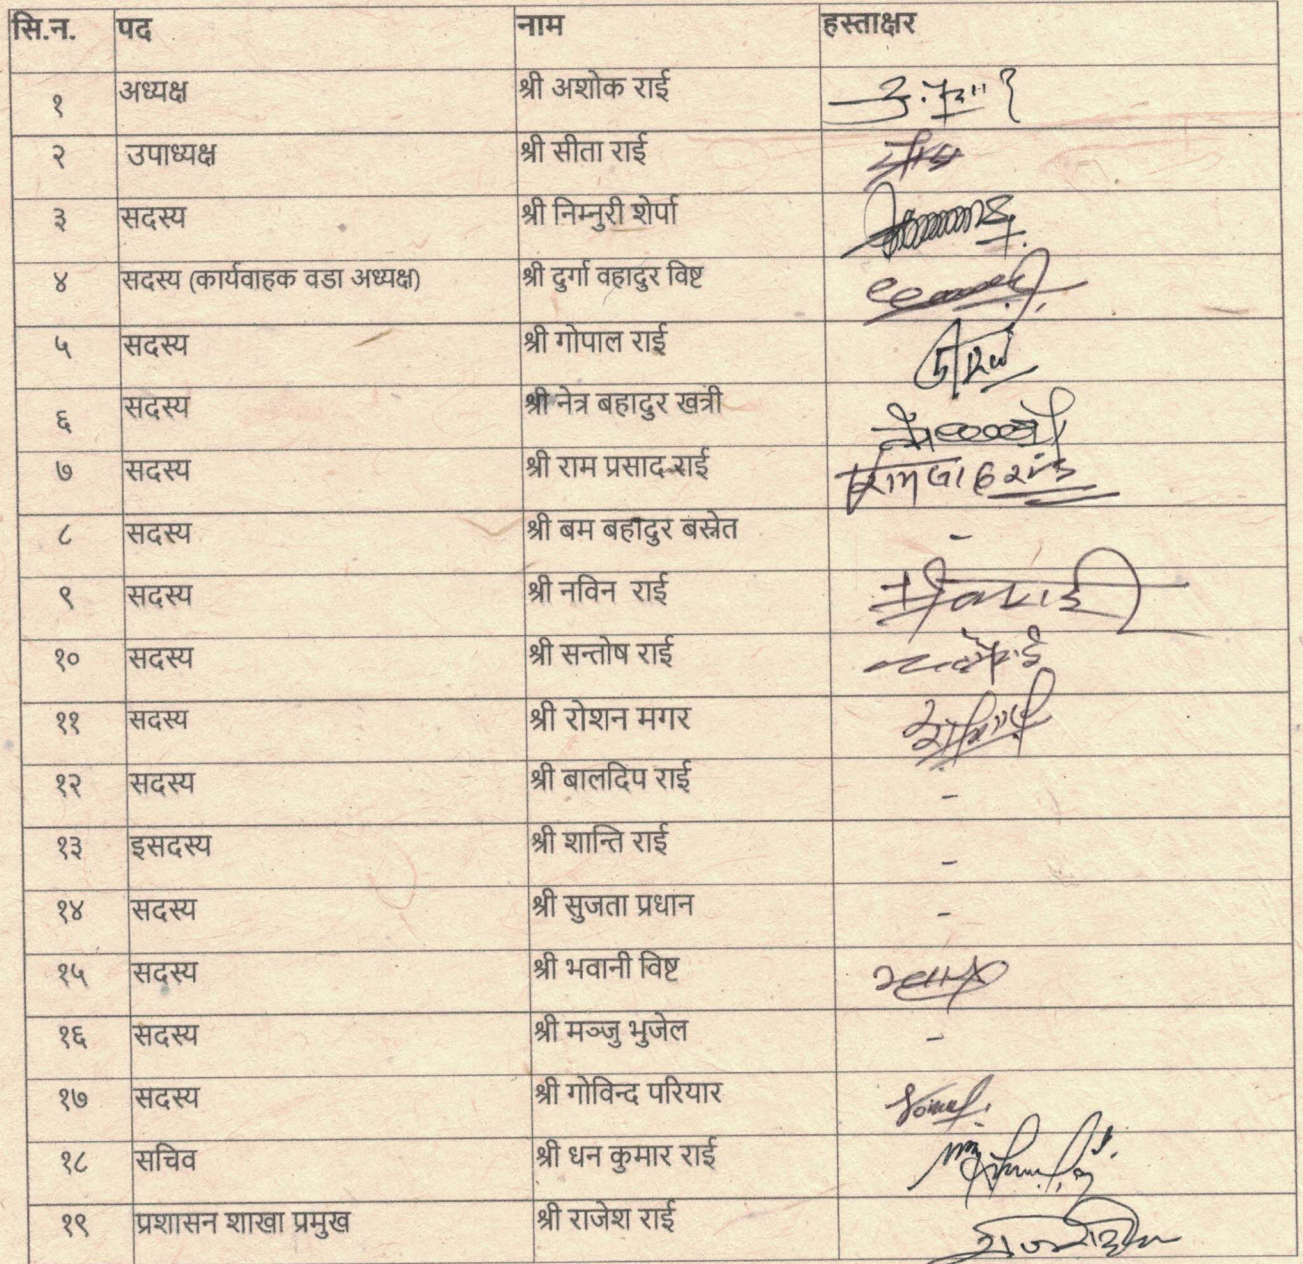 सि.न. पद नाम हस्ताक्षर
१ अध्यक्ष श्री अशोक राई
२ उपाध्यक्ष श्री सीता राई
३ सदस्य श्री निम्नुरी शेर्पा
४ सदस्य (कार्यवाहक वडा अध्यक्ष) श्री दुर्गा वहादुर विष्ट
५ सदस्य श्री गोपाल राई
६ सदस्य श्री नेत्र बहादुर खत्री
७ सदस्य श्री राम प्रसाद राई
८ सदस्य श्री बम बहादुर बस्नेत -
९ सदस्य श्री नविन राई
१० सदस्य श्री सन्तोष राई
११ सदस्य श्री रोशन मगर
१२ सदस्य श्री बालदिप राई -
१३ इसदस्य श्री शान्ति राई -
१४ सदस्य श्री सुजता प्रधान -
१५ सदस्य श्री भवानी विष्ट
१६ सदस्य श्री मञ्जु भुजेल -
१७ सदस्य श्री गोविन्द परियार
१८ सचिव श्री धन कुमार राई
१९ प्रशासन शाखा प्रमुख श्री राजेश राई